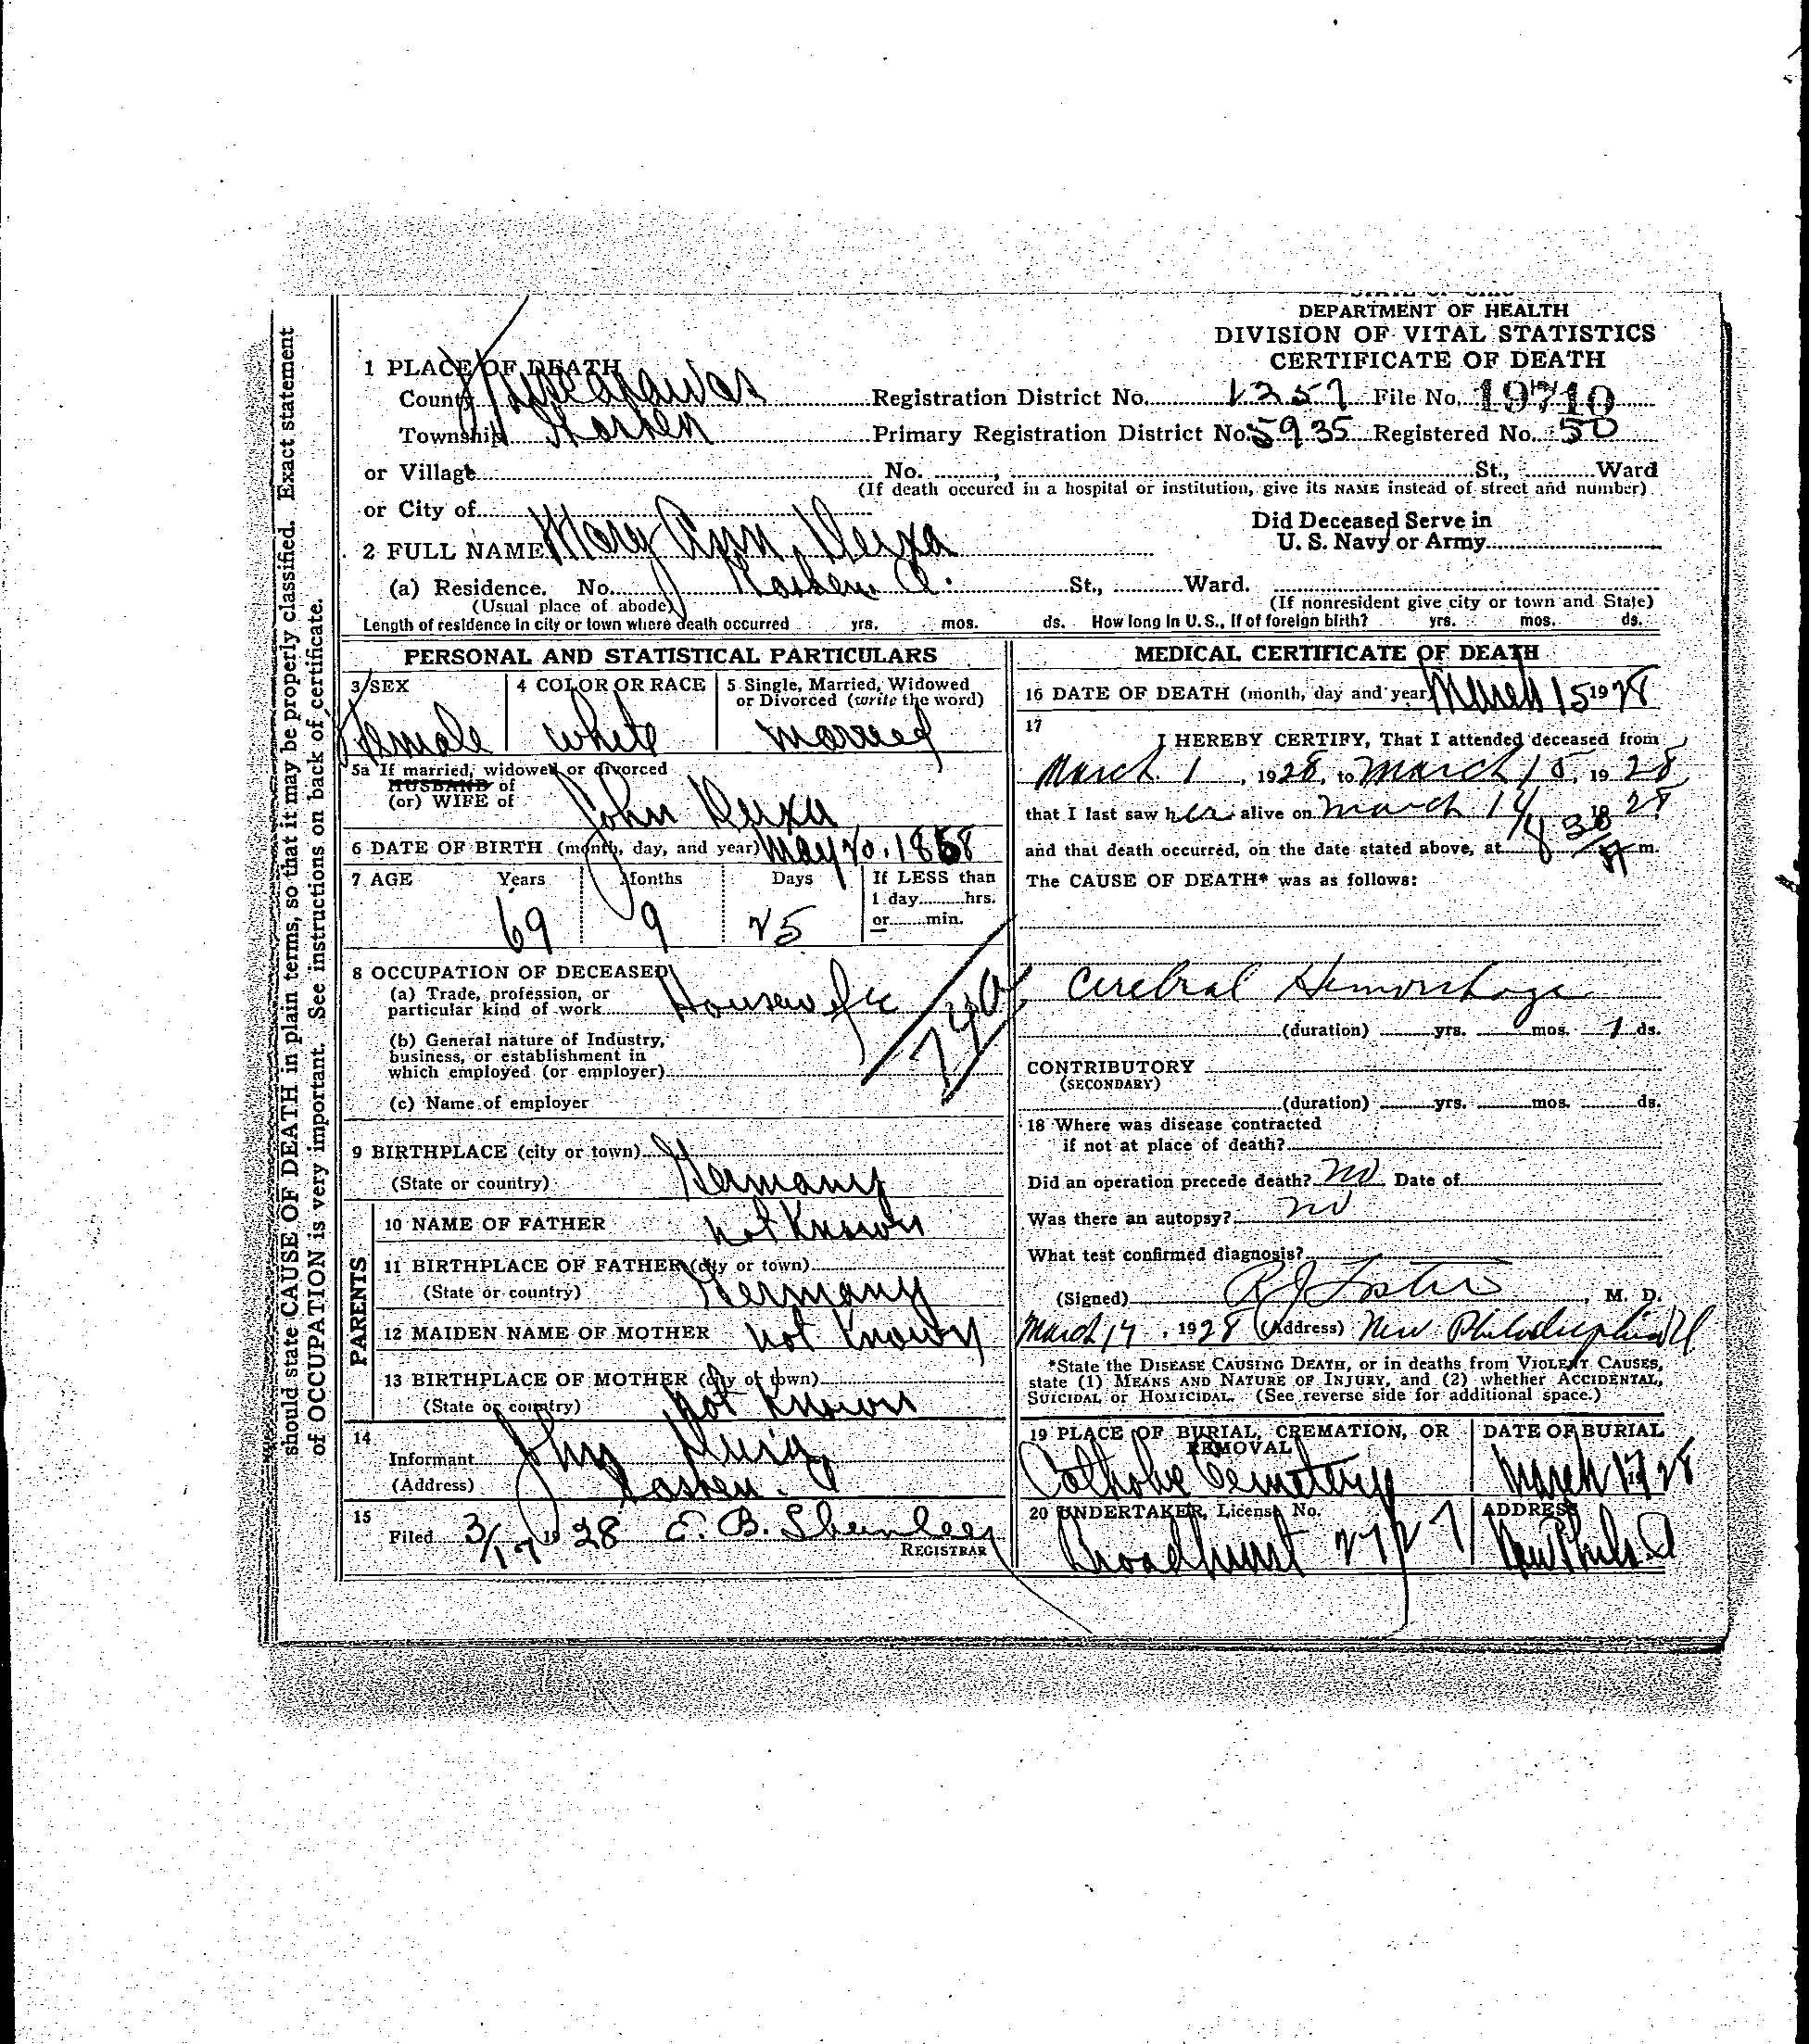 DEPARTMENT OF HEALTH
DIVISION OF VITAL STATISTICS
CERTIFICATE OF DEATH
1 PLACE OF DEATH
County Tuscarawas Registration District No. 1257 File No. 19710
Township Goshen Primary Registration District No. 5935 Registered No. 50
or Village No. , St., Ward
(If death occured in a hospital or institution, give its NAME instead of street and number)
or City of
Did Deceased Serve in
U. S. Navy or Army
2 FULL NAME Mary Ann
(a) Residence. No. Goshen O. St., Ward.
(Usual place of abode) (If nonresident give city or town and State)
Length of residence in city or town where death occurred yrs. mos. ds. How long in U. S., if of foreign birth? yrs. mos. ds.
PERSONAL AND STATISTICAL PARTICULARS
3 SEX 4 COLOR OR RACE 5 Single, Married, Widowed
or Divorced (write the word)
Female white married
5a If married, widowed or divorced
HUSBAND of
(or) WIFE of John
6 DATE OF BIRTH (month, day, and year) May 20, 1858
7 AGE Years Months Days If LESS than
1 day hrs.
or min.
69 9 25
8 OCCUPATION OF DECEASED
(a) Trade, profession, or
particular kind of work Housewife
(b) General nature of Industry,
business, or establishment in
which employed (or employer)
(c) Name of employer
9 BIRTHPLACE (city or town)
(State or country) Germany
PARENTS
10 NAME OF FATHER not Known
11 BIRTHPLACE OF FATHER (city or town)
(State or country) Germany
12 MAIDEN NAME OF MOTHER not Known
13 BIRTHPLACE OF MOTHER (city or town)
(State or country) not Known
14
Informant John
(Address) Goshen. O
15
Filed 3/17 1928 E. B. Shanley
REGISTRAR
MEDICAL CERTIFICATE OF DEATH
16 DATE OF DEATH (month, day and year) March 15 1928
17
I HEREBY CERTIFY, That I attended deceased from
March 1, 1928, to March 15, 1928
that I last saw her alive on March 14 1928
and that death occurred, on the date stated above, at 8 30 A m.
The CAUSE OF DEATH* was as follows:
Cerebral Hemorrhage
(duration) yrs. mos. 1 ds.
CONTRIBUTORY
(SECONDARY)
(duration) yrs. mos. ds.
18 Where was disease contracted
if not at place of death?
Did an operation precede death? no Date of
Was there an autopsy? no
What test confirmed diagnosis?
(Signed) R J Foster, M. D.
March 17, 1928 (Address) New Philadelphia O
*State the DISEASE CAUSING DEATH, or in deaths from VIOLENT CAUSES,
state (1) MEANS AND NATURE OF INJURY, and (2) whether ACCIDENTAL,
SUICIDAL or HOMICIDAL. (See reverse side for additional space.)
19 PLACE OF BURIAL, CREMATION, OR
REMOVAL DATE OF BURIAL
Catholic Cemetery March 17 1928
20 UNDERTAKER, License No. ADDRESS
Broadhurst 2727 New Phila. O
should state CAUSE OF DEATH in plain terms, so that it may be properly classified. Exact statement
of OCCUPATION is very important. See instructions on back of certificate.